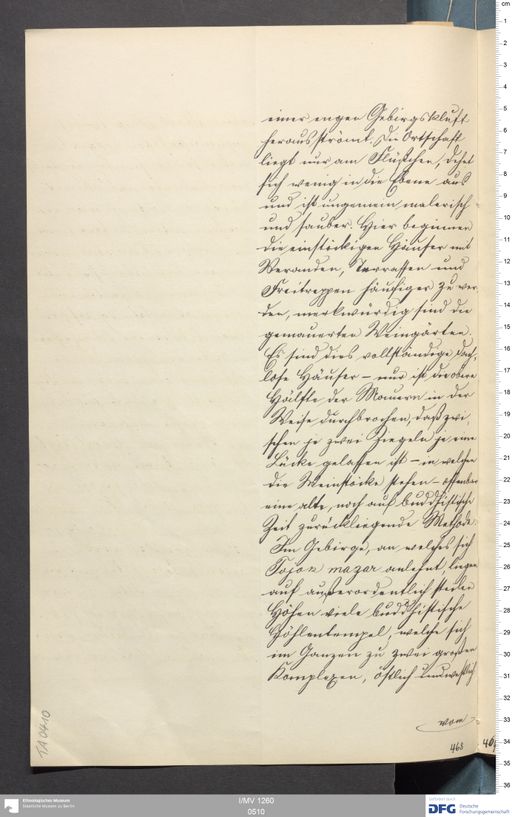 einer engen Gebirgskluft
herausströmt. Die Ortschaft
liegt nur am Flüßchen, dehnt
sich wenig in die Ebene aus
und ist ungemein malerisch
und sauber. Hier beginnen
die einstöckigen Häuser mit
Veranden, Terrassen und
Freitreppen häufiger zu wer-
den, merkwürdig sind die
gemauerten Weingärten.
Es sind dies vollständige dach-
lose Häuser – nur ist die obere
Hälfte der Mauern in der
Weise durchbrochen, daß zwi-
schen je zwei Ziegeln je eine
Lücke gelassen ist – in welchen
die Weinstöcke stehen – offenbar
eine alte, noch auf buddhistische
Zeit zurückliegende Methode.
Im Gebirge, an welches sich
Tojok mazar anlehnt, liegen
auf außerordentlich steilen
Höhen viele buddhistische
Höhlentempel, welche sich
im Ganzen zu zwei großen
Komplexen, östlich und westlich
vom
468
TA 0410
cm
1
2
3
4
5
6
7
8
9
10
11
12
13
14
15
16
17
18
19
20
21
22
23
24
25
26
27
28
29
30
31
32
33
34
35
36
Ethnologisches Museum
Staatliche Museen zu Berlin
I/MV 1260
0510
DFG Deutsche
Forschungsgemeinschaft